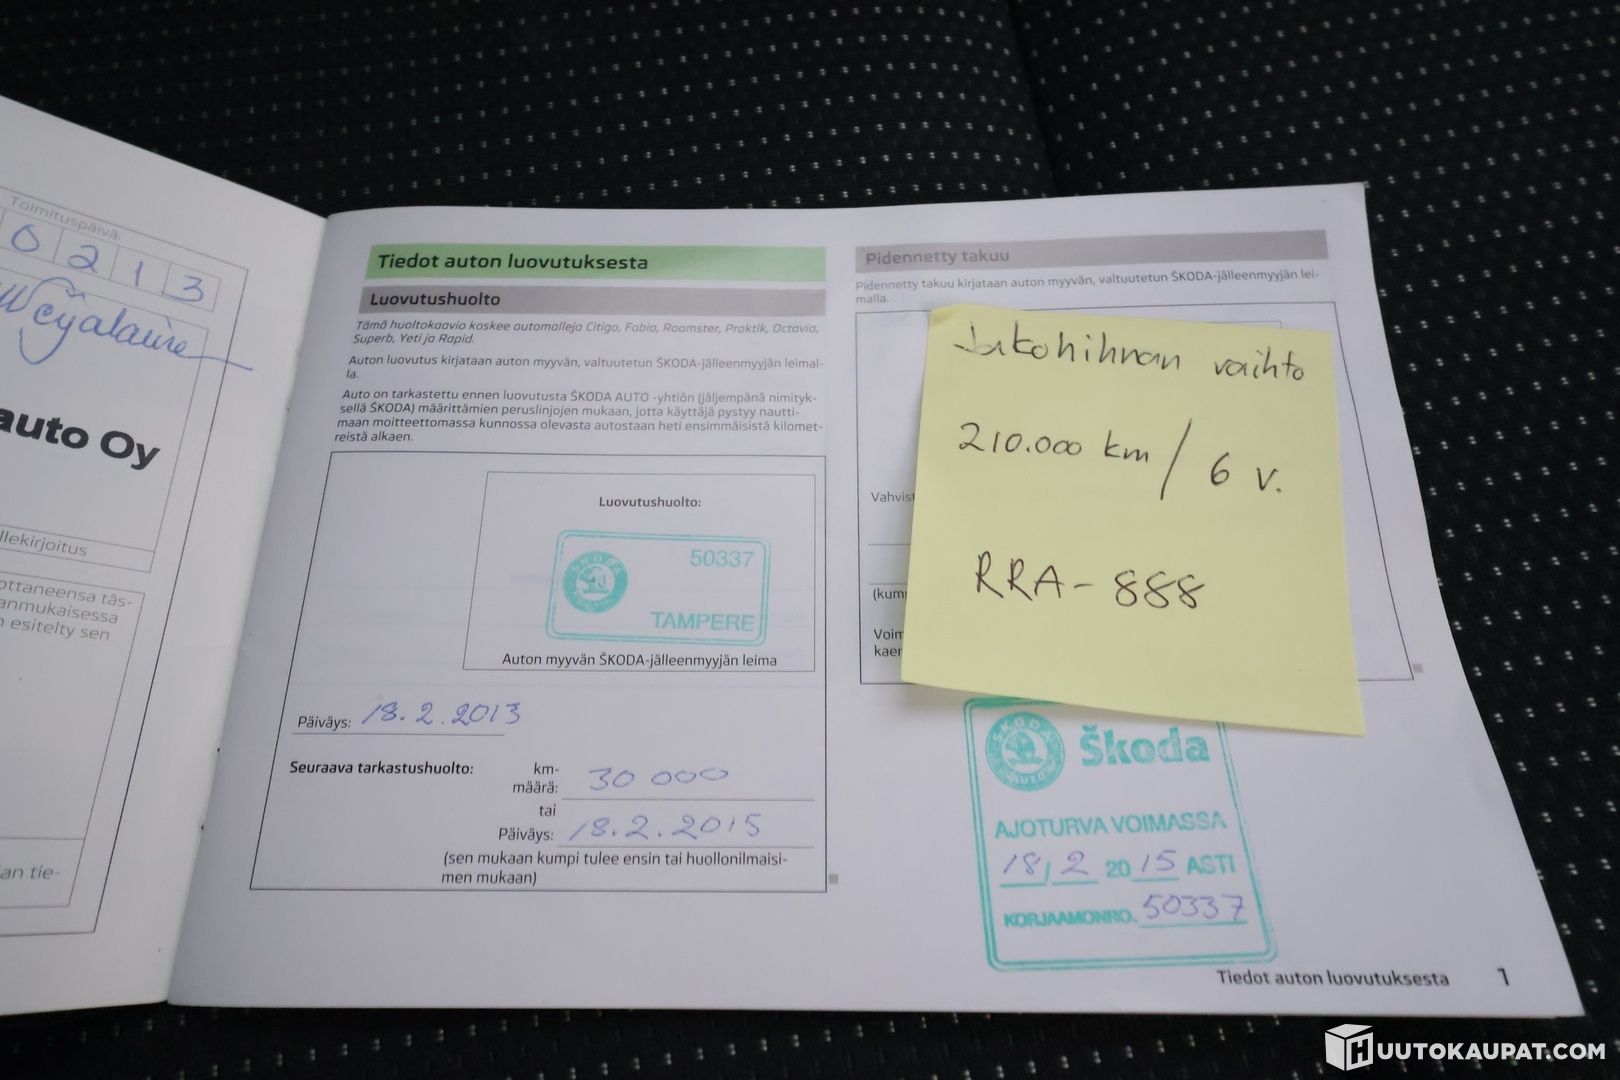 Toimituspäivä:
0 2 1 3
auto Oy
llekirjoitus
ottaneensa täs-
anmukaisessa
n esitelty sen
an tie-
Tiedot auton luovutuksesta
Luovutushuolto
Tämä huoltokaavio koskee automalleja Citigo, Fabia, Roomster, Praktik, Octavia,
Superb, Yeti ja Rapid.
Auton luovutus kirjataan auton myyvän, valtuutetun ŠKODA-jälleenmyyjän leimal-
la.
Auto on tarkastettu ennen luovutusta ŠKODA AUTO -yhtiön (jäljempänä nimityk-
sellä ŠKODA) määrittämien peruslinjojen mukaan, jotta käyttäjä pystyy nautti-
maan moitteettomassa kunnossa olevasta autostaan heti ensimmäisistä kilomet-
reistä alkaen.
Luovutushuolto:
SKODA
50337
TAMPERE
Auton myyvän ŠKODA-jälleenmyyjän leima
Päiväys: 18.2.2013
Seuraava tarkastushuolto:
km-
määrä: 30 000
tai
Päiväys: 18.2.2015
(sen mukaan kumpi tulee ensin tai huollonilmaisi-
men mukaan)
Pidennetty takuu
Pidennetty takuu kirjataan auton myyvän, valtuutetun ŠKODA-jälleenmyyjän lei-
malla.
Vahvist
(kum
Voim
kaer
Jakohihnan vaihto
210.000 km / 6 v.
RRA-888
SKODA
AUTO
Škoda
AJOTURVA VOIMASSA
18/2 2015 ASTI
KORJAAMONRO. 50337
Tiedot auton luovutuksesta 1
HUUTOKAUPAT.COM